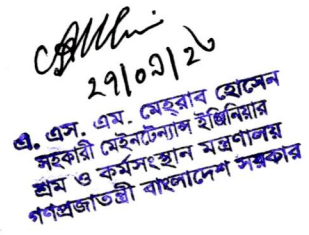 ২৭/০১/২৬
এ. এস. এম. মেহরাব হোসেন
সহকারী মেইনটেন্যান্স ইঞ্জিনিয়ার
শ্রম ও কর্মসংস্থান মন্ত্রণালয়
গণপ্রজাতন্ত্রী বাংলাদেশ সরকার